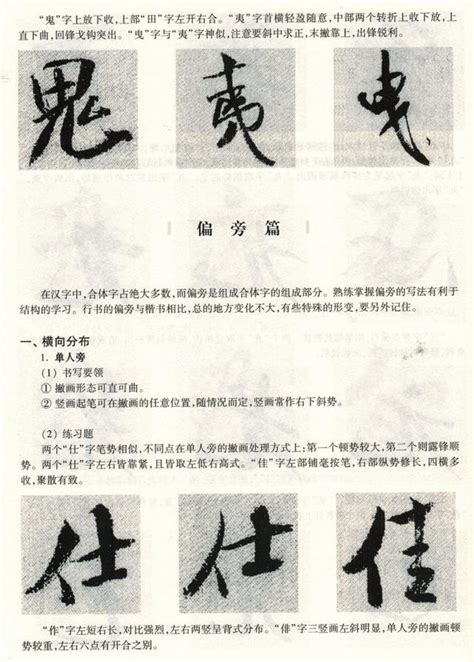 “鬼”字上放下收,上部“田”字左开右合。“夷”字首横轻盈随意,中部两个转折上收下放,上
直下曲,回锋戈钩突出。“曳”字与“夷”字神似,注意要斜中求正,末撇靠上,出锋锐利。
鬼 夷 曳
偏旁篇
在汉字中,合体字占绝大多数,而偏旁是组成合体字的组成部分。熟练掌握偏旁的写法有利于
结构的学习。行书的偏旁与楷书相比,总的地方变化不大,有些特殊的形变,要另外记住。
一、横向分布
1. 单人旁
(1) 书写要领
① 撇画形态可直可曲。
② 竖画起笔可在撇画的任意位置,随情况而定,竖画常作右下斜势。
(2) 练习题
两个“仕”字笔势相似,不同点在单人旁的撇画处理方式上:第一个顿势较大,第二个则露锋顺
势。两个“仕”字左右皆靠紧,且皆取左低右高式。“佳”字左部铺毫按笔,右部纵势修长,四横多
收,聚散有致。
仕 仕 佳
“作”字左短右长,对比强烈,左右两竖呈背式分布。“俳”字三竖画左斜明显,单人旁的撇画顿
势较重,左右六点有开合之别。